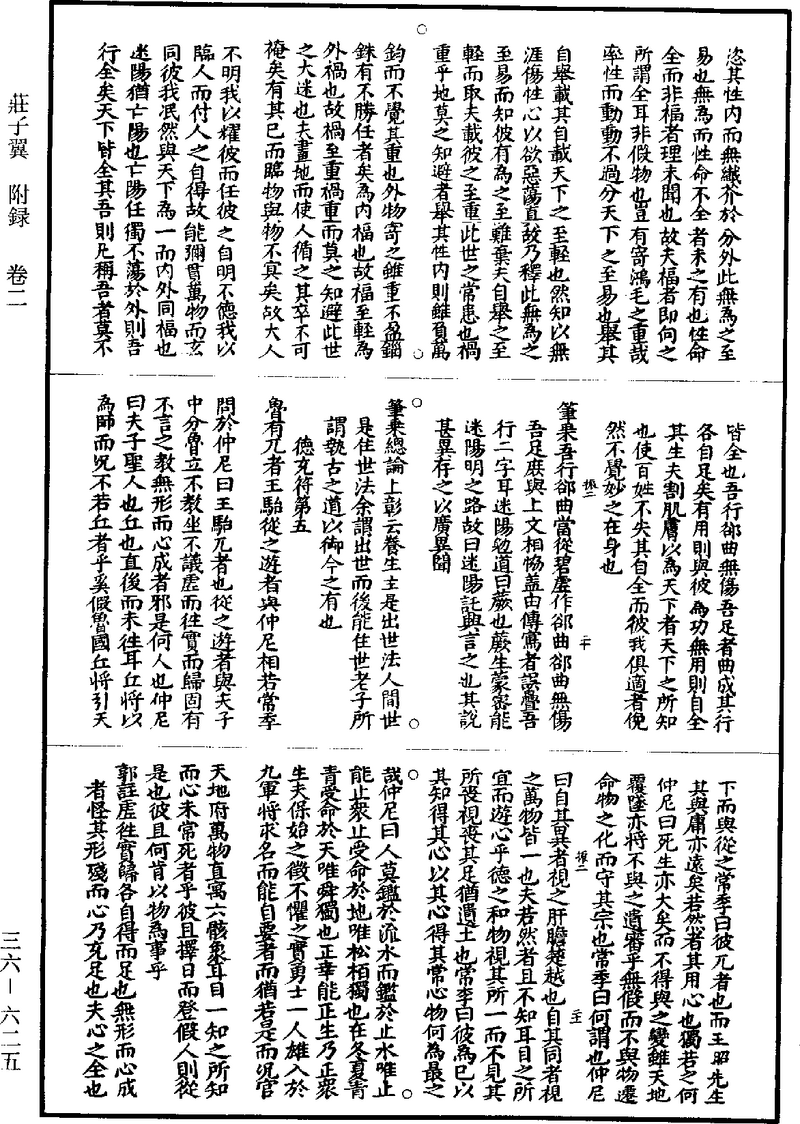 恣其性内而無纖介於分外此無為之至
易也無為而性命不全者未之有也性命
全而非福者理未聞也故夫福者即向之
所謂全耳非假物也豈有寄鴻毛之重哉
率性而動動不過分天下之至易也舉其
自舉載其自載天下之至輕也然知以無
涯傷性心以欲惡蕩真故乃釋此無為之
至易而知彼有為之至難棄夫自舉之至
輕而取夫載彼之至重此世之常患也禍
重乎地莫之知避者舉其性内則雖負萬
鈞而不覺其重也外物寄之雖重不盈錙
銖有不勝任者矣為内福也故福至輕為
外禍也故禍至重禍重而莫之知避此世
之大迷也夫畫地而使人循之其卒不可
掩矣有其已而臨物與物不冥矣故大人
不明我以耀彼而任彼之自明不德我以
臨人而付人之自得故能彌貫萬物而玄
同彼我泯然與天下為一而内外同福也
迷陽猶亡陽也亡陽任獨不蕩於外則吾
行全矣天下皆全其吾則凡稱吾者莫不
皆全也吾行郤曲無傷吾足者曲成其行
各自足矣有用則與彼為功無用則自全
其生夫割肌膚以為天下者天下之所知
也使百姓不失其自全而彼我俱適者俛
然不覺妙之在身也
筆乗吾行郤曲當從碧虛作郤曲郤曲無傷
吾足庶與上文相恊蓋由傳寫者誤疊吾
行二字耳迷陽勉道曰蕨也蕨生蒙密能
迷陽明之路故曰迷陽託興言之也其說
甚異存之以廣異聞
筆乗總論上彰云養生主是出世法人間世
是住世法余謂出世而後能住世老子所
謂執古之道以御今之有也
德充符第五
魯有兀者王駘從之遊者與仲尼相若常季
問於仲尼曰王駘兀者也從之遊者與夫子
中分魯立不教坐不議虛而往實而歸固有
不言之教無形而心成者邪是何人也仲尼
曰夫子聖人也丘也直後而未往耳丘將以
為師而况不若丘者乎奚假魯國丘將引天
下而與從之常季曰彼兀者也而王㫬先生
其與庸亦遠矣若然者其用心也獨若之何
仲尼曰死生亦大矣而不得與之變雖天地
覆墜亦將不與之遺審乎無假而不與物遷
命物之化而守其宗也常季曰何謂也仲尼
曰自其異者視之肝膽楚越也自其同者視
之萬物皆一也夫若然者且不知耳目之所
宜而遊心乎德之和物視其所一而不見其
所喪視喪其足猶遺土也常季曰彼為已以
其知得其心以其心得其常心物何為最之
哉仲尼曰人莫鑑於流水而鑑於止水唯止
能止衆止受命於地唯松栢獨也在冬夏青
青受命於天唯舜獨也正幸能正生乃正衆
生夫保始之徵不懼之實勇士一人雄入於
九軍將求名而能自要者而猶若是而况官
天地府萬物直寓六骸象耳目一知之所知
而心未常死者乎彼且擇日而登假人則從
是也彼且何肯以物為事乎
郭註虛往實歸各自得而足也無形而心成
者怪其形殘而心乃充足也夫心之全也
莊子翼 附録 卷二
三六—六二五